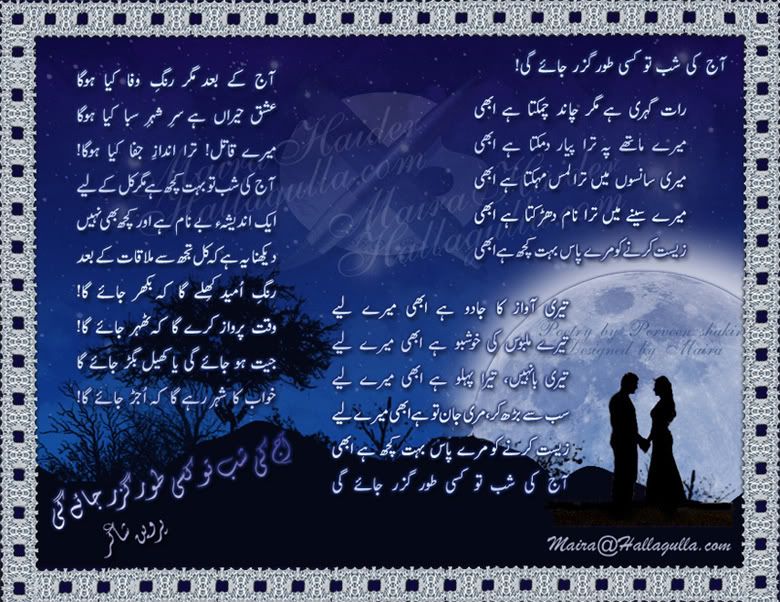 آج کی شب تو کسی طور گزر جائے گی!
رات گہری ہے مگر چاند چمکتا ہے ابھی
میرے ماتھے پہ ترا پیار دمکتا ہے ابھی
میری سانسوں میں ترا لمس مہکتا ہے ابھی
میرے سینے میں ترا نام دھڑکتا ہے ابھی
زیست کرنے کو مرے پاس بہت کچھ ہے ابھی
تیری آواز کا جادو ہے ابھی میرے لیے
تیرے ملبوس کی خوشبو ہے ابھی میرے لیے
تیری بانہیں، تیرا پہلو ہے ابھی میرے لیے
سب سے بڑھ کر، مری جان تو ہے ابھی میرے لیے
زیست کرنے کو مرے پاس بہت کچھ ہے ابھی
آج کی شب تو کسی طور گزر جائے گی
آج کے بعد مگر رنگِ وفا کیا ہوگا
عشق حیراں ہے سرِ شہرِ سبا کیا ہوگا
میرے قاتل! ترا اندازِ جفا کیا ہوگا!
آج کی شب تو بہت کچھ ہے مگر کل کے لیے
ایک اندیشۂ بے نام ہے اور کچھ بھی نہیں
دیکھنا یہ ہے کہ کل تجھ سے ملاقات کے بعد
رنگِ اُمید کھلے گا کہ بکھر جائے گا!
وقت پرواز کرے گا کہ ٹھہر جائے گا!
جیت ہو جائے گی یا کھیل بگڑ جائے گا
خواب کا شہر رہے گا کہ اُجڑ جائے گا!
آج کی شب تو کسی طور گزر جائے گی
پروین شاکر
Poetry by Perveen shakir
Designed by Maira
Maira Haider
Hallagulla.com
Maira Haider
Hallagulla.com
Maira@Hallagulla.com